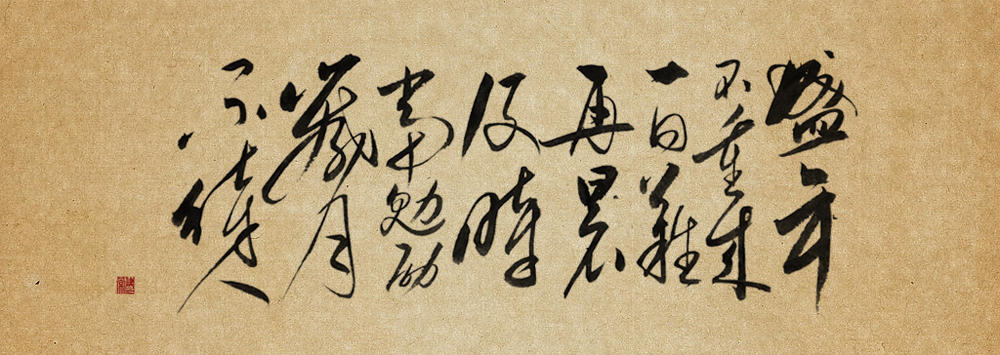 盛年
不重来
一日難
再晨
及時
當勉励
歲月
不待人